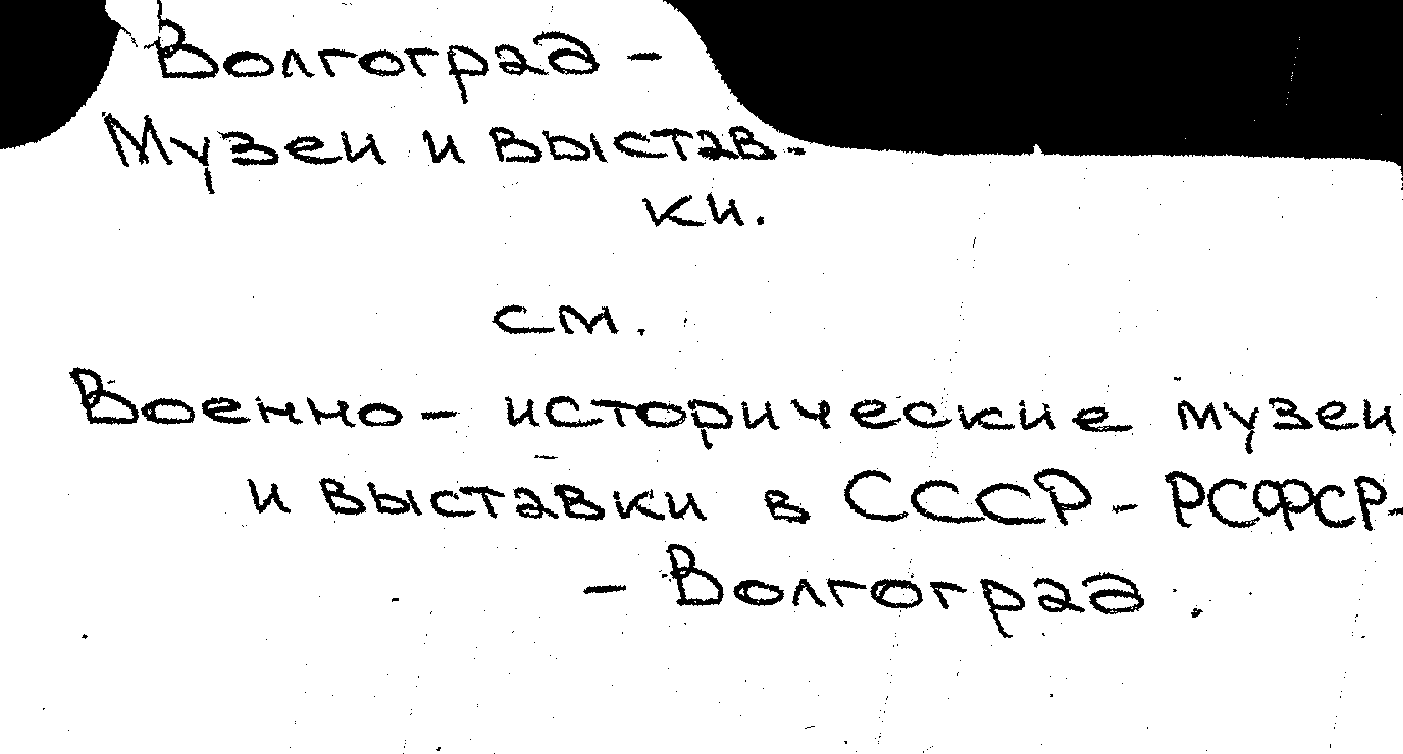 Волгоград -
Музеи и выстав-
ки.
см.
Военно - исторические музеи
и выставки в СССР - РСФСР -
- Волгоград.